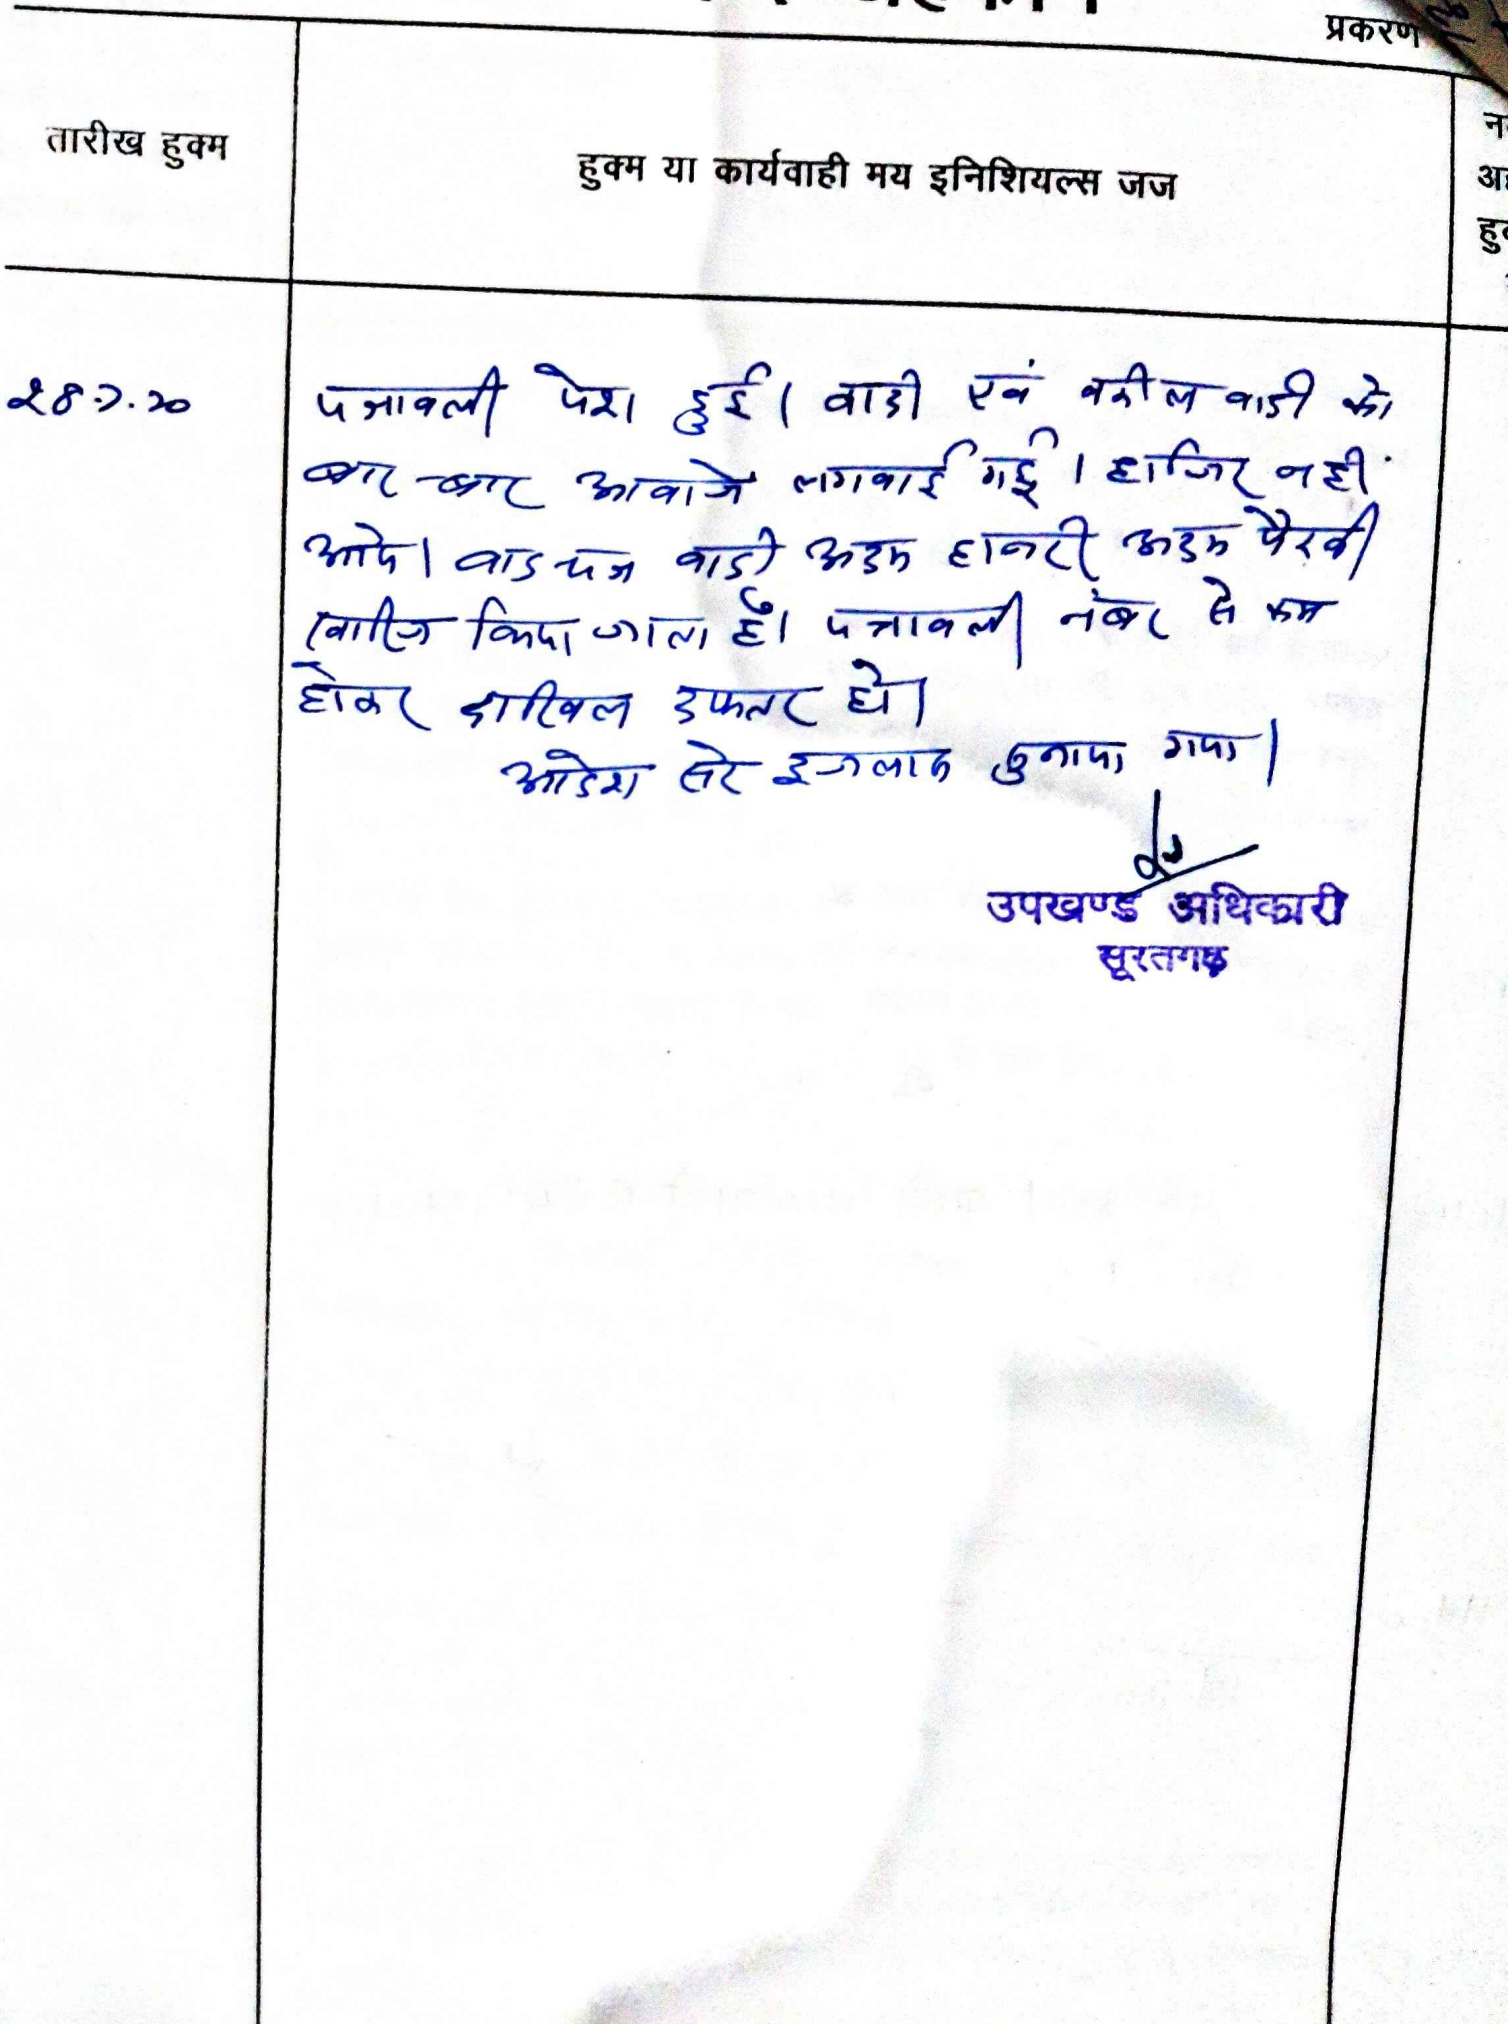 प्रकरण
तारीख हुक्म
हुक्म या कार्यवाही मय इनिशियल्स जज
28.7.20
पत्रावली पेश हुई। वादी एवं वकील वादी को
बार-बार आवाजे लगवाई गई। हाजिर नहीं
आये। वाद पत्र वादी अदम हाजरी अदम पैरवी
खारिज किया जाता है। पत्रावली नंबर से कम
होकर दाखिल दफ्तर हो।
आदेश सरे इजलास सुनाया गया।
उपखण्ड अधिकारी
सूरतगढ़